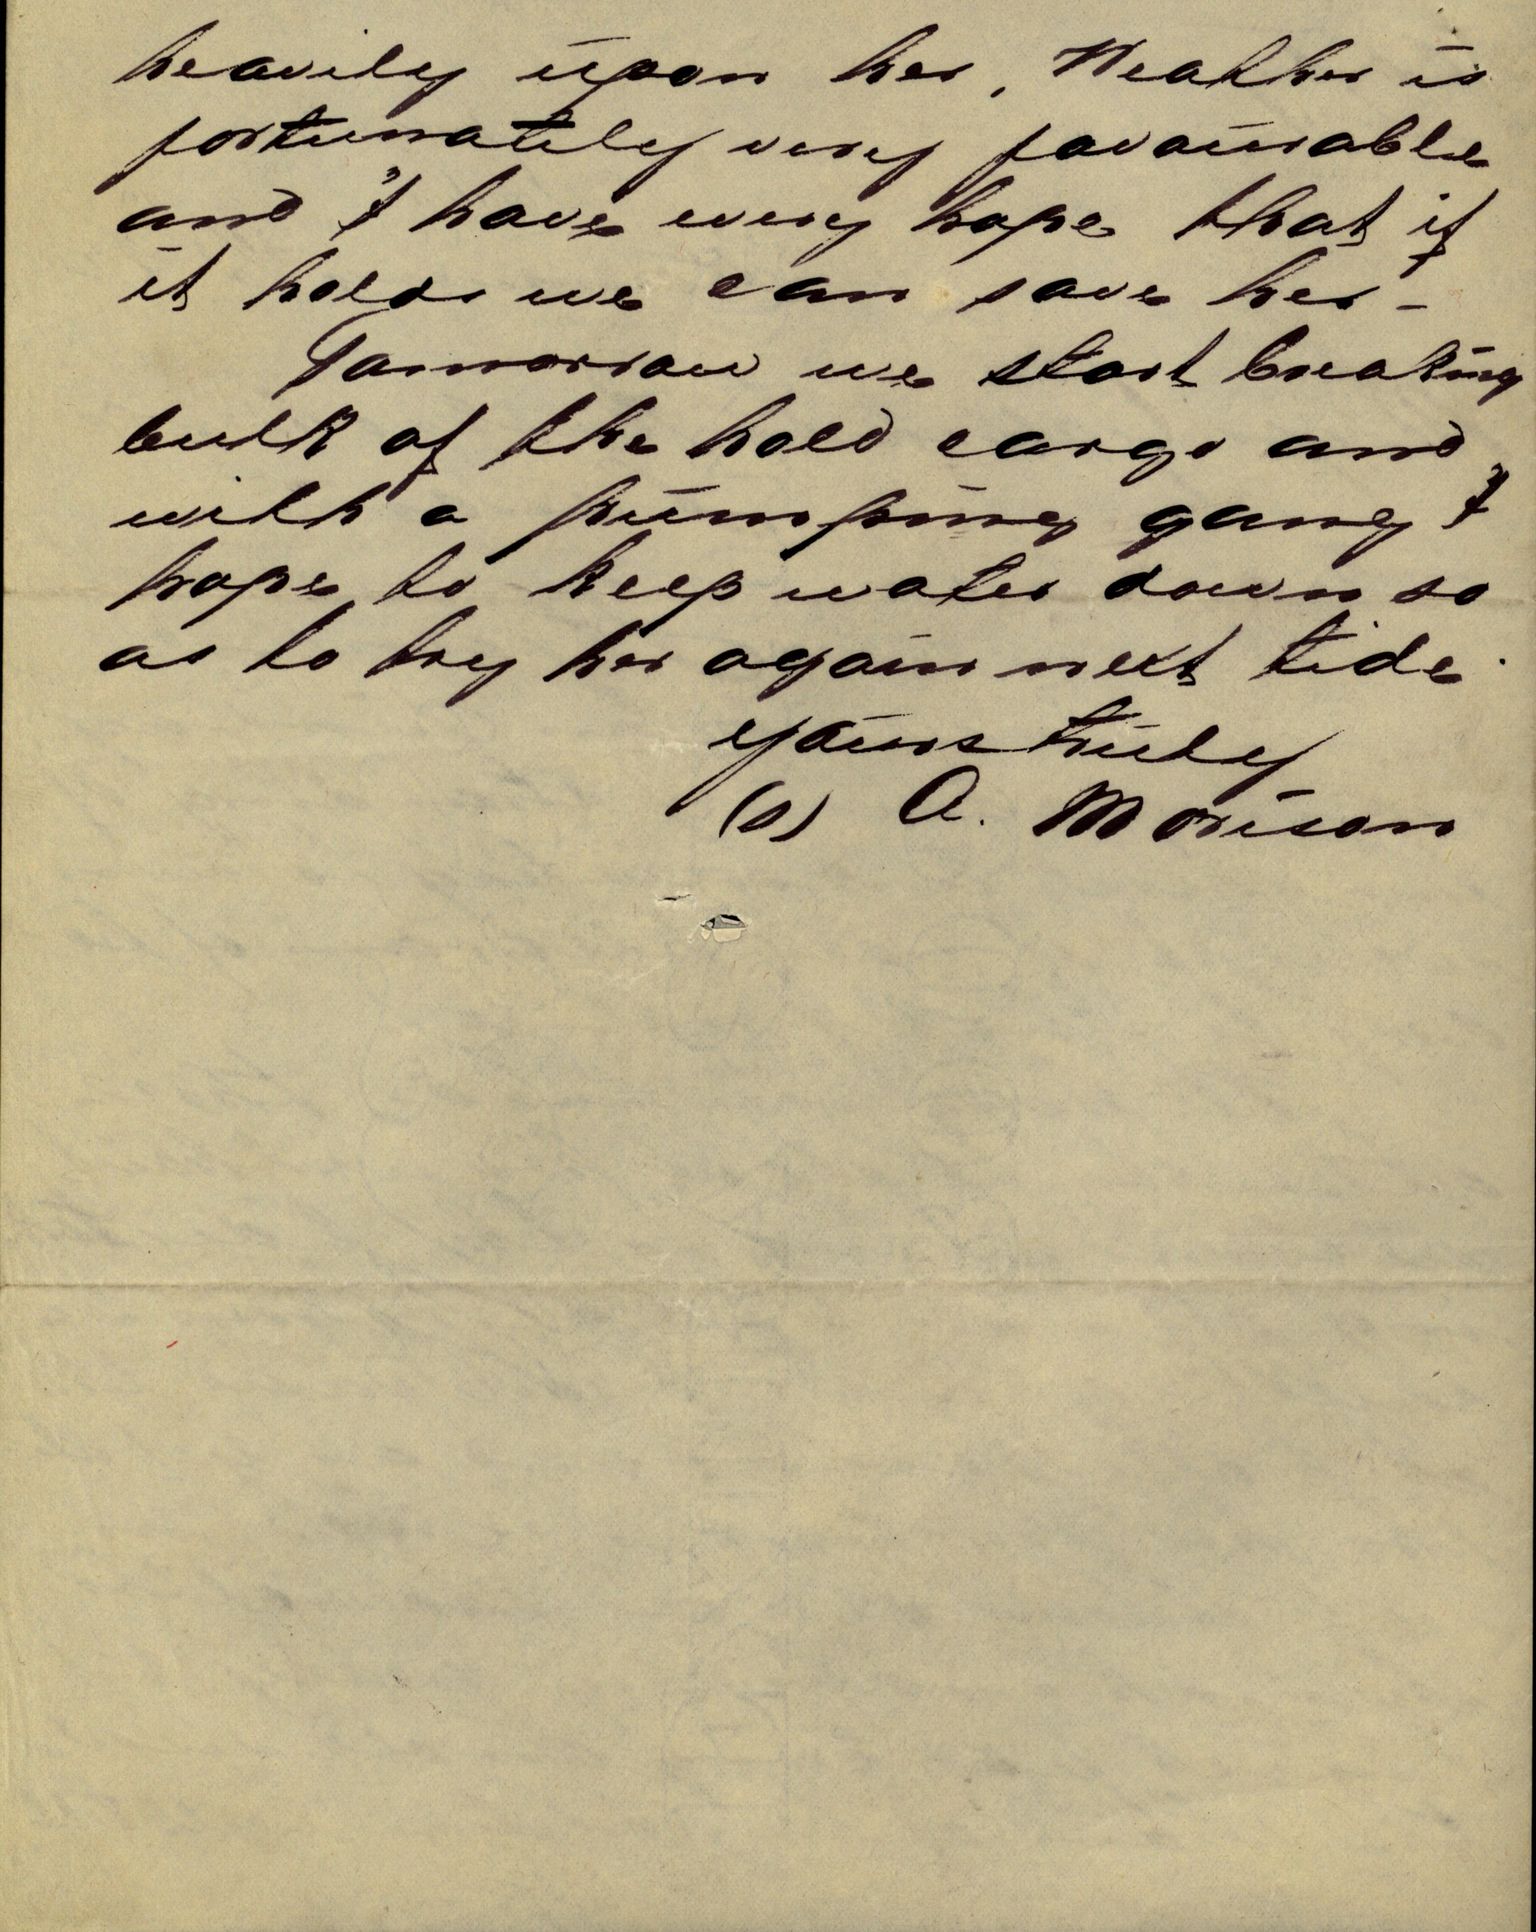 heavily upon her, Weather is
fortunately very favourable
and I have every hope that if
it holds we can save her -
Tomorrow we start breaking
bulk of the hold cargo and
with a pumping gang I
hope to keep water down so
as to try her again next tide.
yours truly
(s) A. Morison